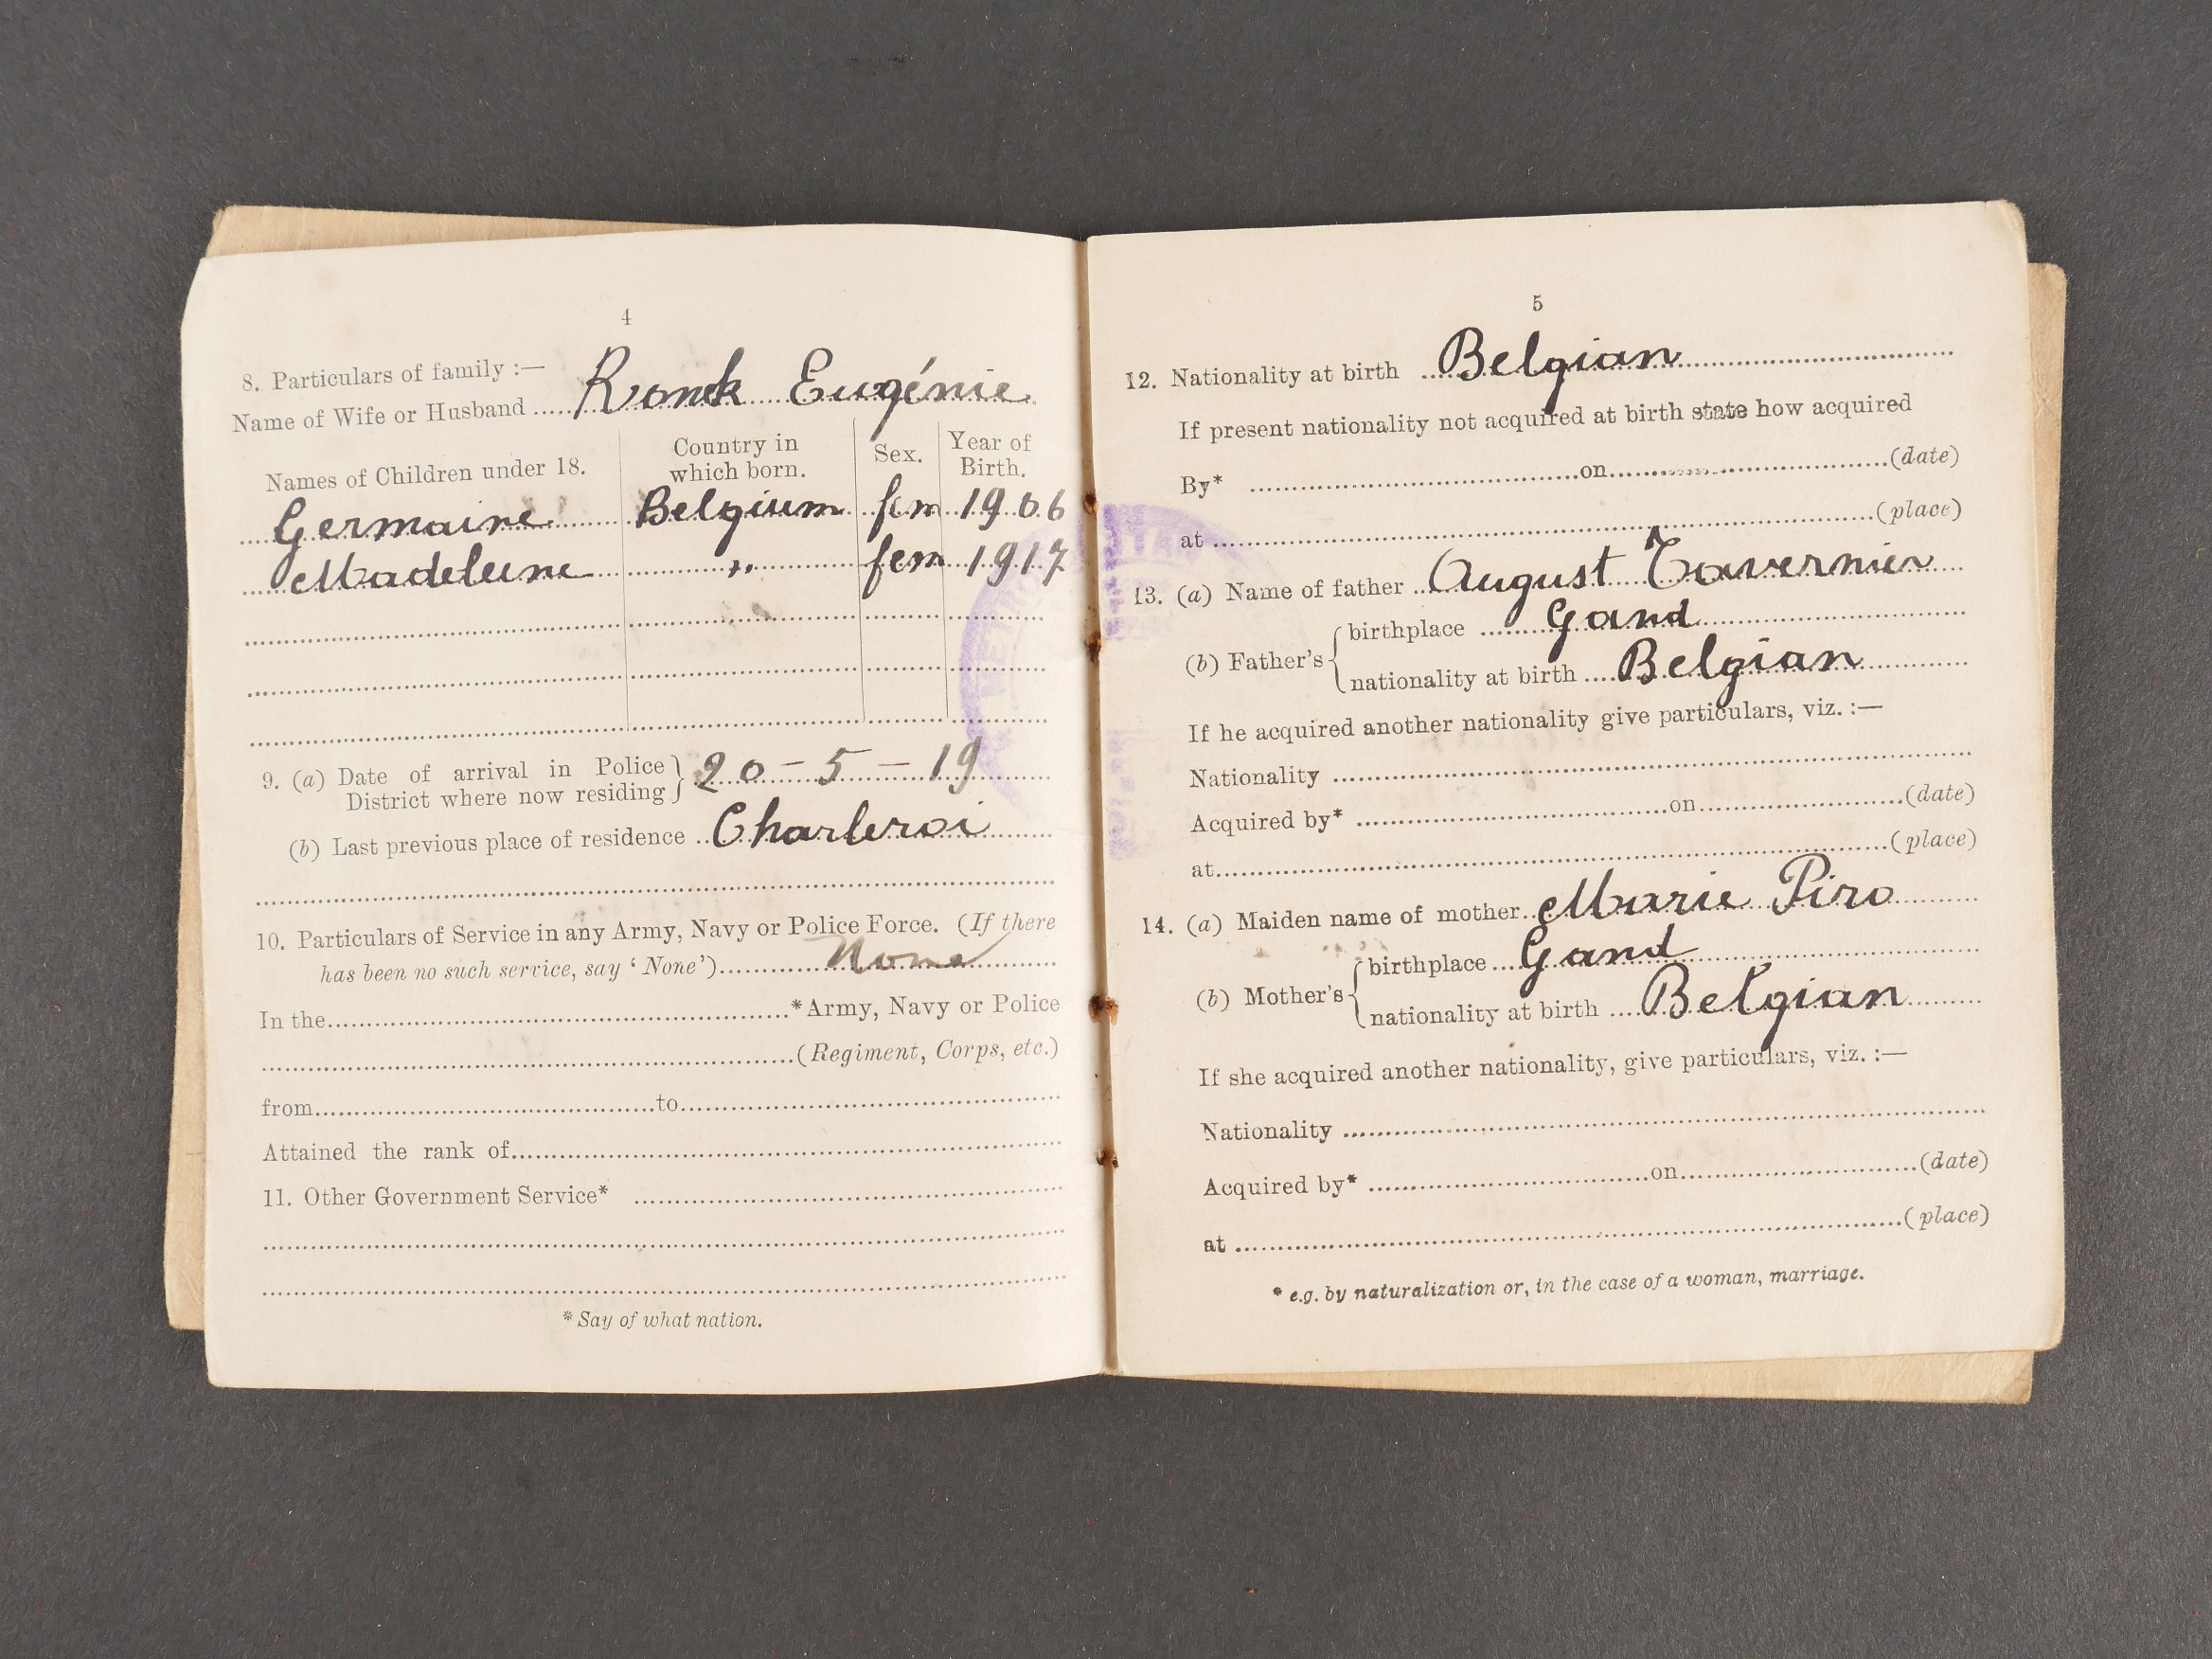 4
8. Particulars of family :—
Name of Wife or Husband Ronck Eugénie
Names of Children under 18. Country in which born. Sex. Year of Birth.
Germaine Belgium fem 1906
Madeleine " fem 1917
9. (a) Date of arrival in Police District where now residing } 20-5-19
(b) Last previous place of residence Charleroi
10. Particulars of Service in any Army, Navy or Police Force. (If there
has been no such service, say ‘None’) None
In the *Army, Navy or Police
(Regiment, Corps, etc.)
from to
Attained the rank of
11. Other Government Service*
* Say of what nation.
5
12. Nationality at birth Belgian
If present nationality not acquired at birth state how acquired
By* on (date)
at (place)
13. (a) Name of father August Tavernier
(b) Father's { birthplace Gand
nationality at birth Belgian
If he acquired another nationality give particulars, viz. :—
Nationality
Acquired by* on (date)
at (place)
14. (a) Maiden name of mother Marie Piro
(b) Mother's { birthplace Gand
nationality at birth Belgian
If she acquired another nationality, give particulars, viz. :—
Nationality
Acquired by* on (date)
at (place)
* e.g. by naturalization or, in the case of a woman, marriage.